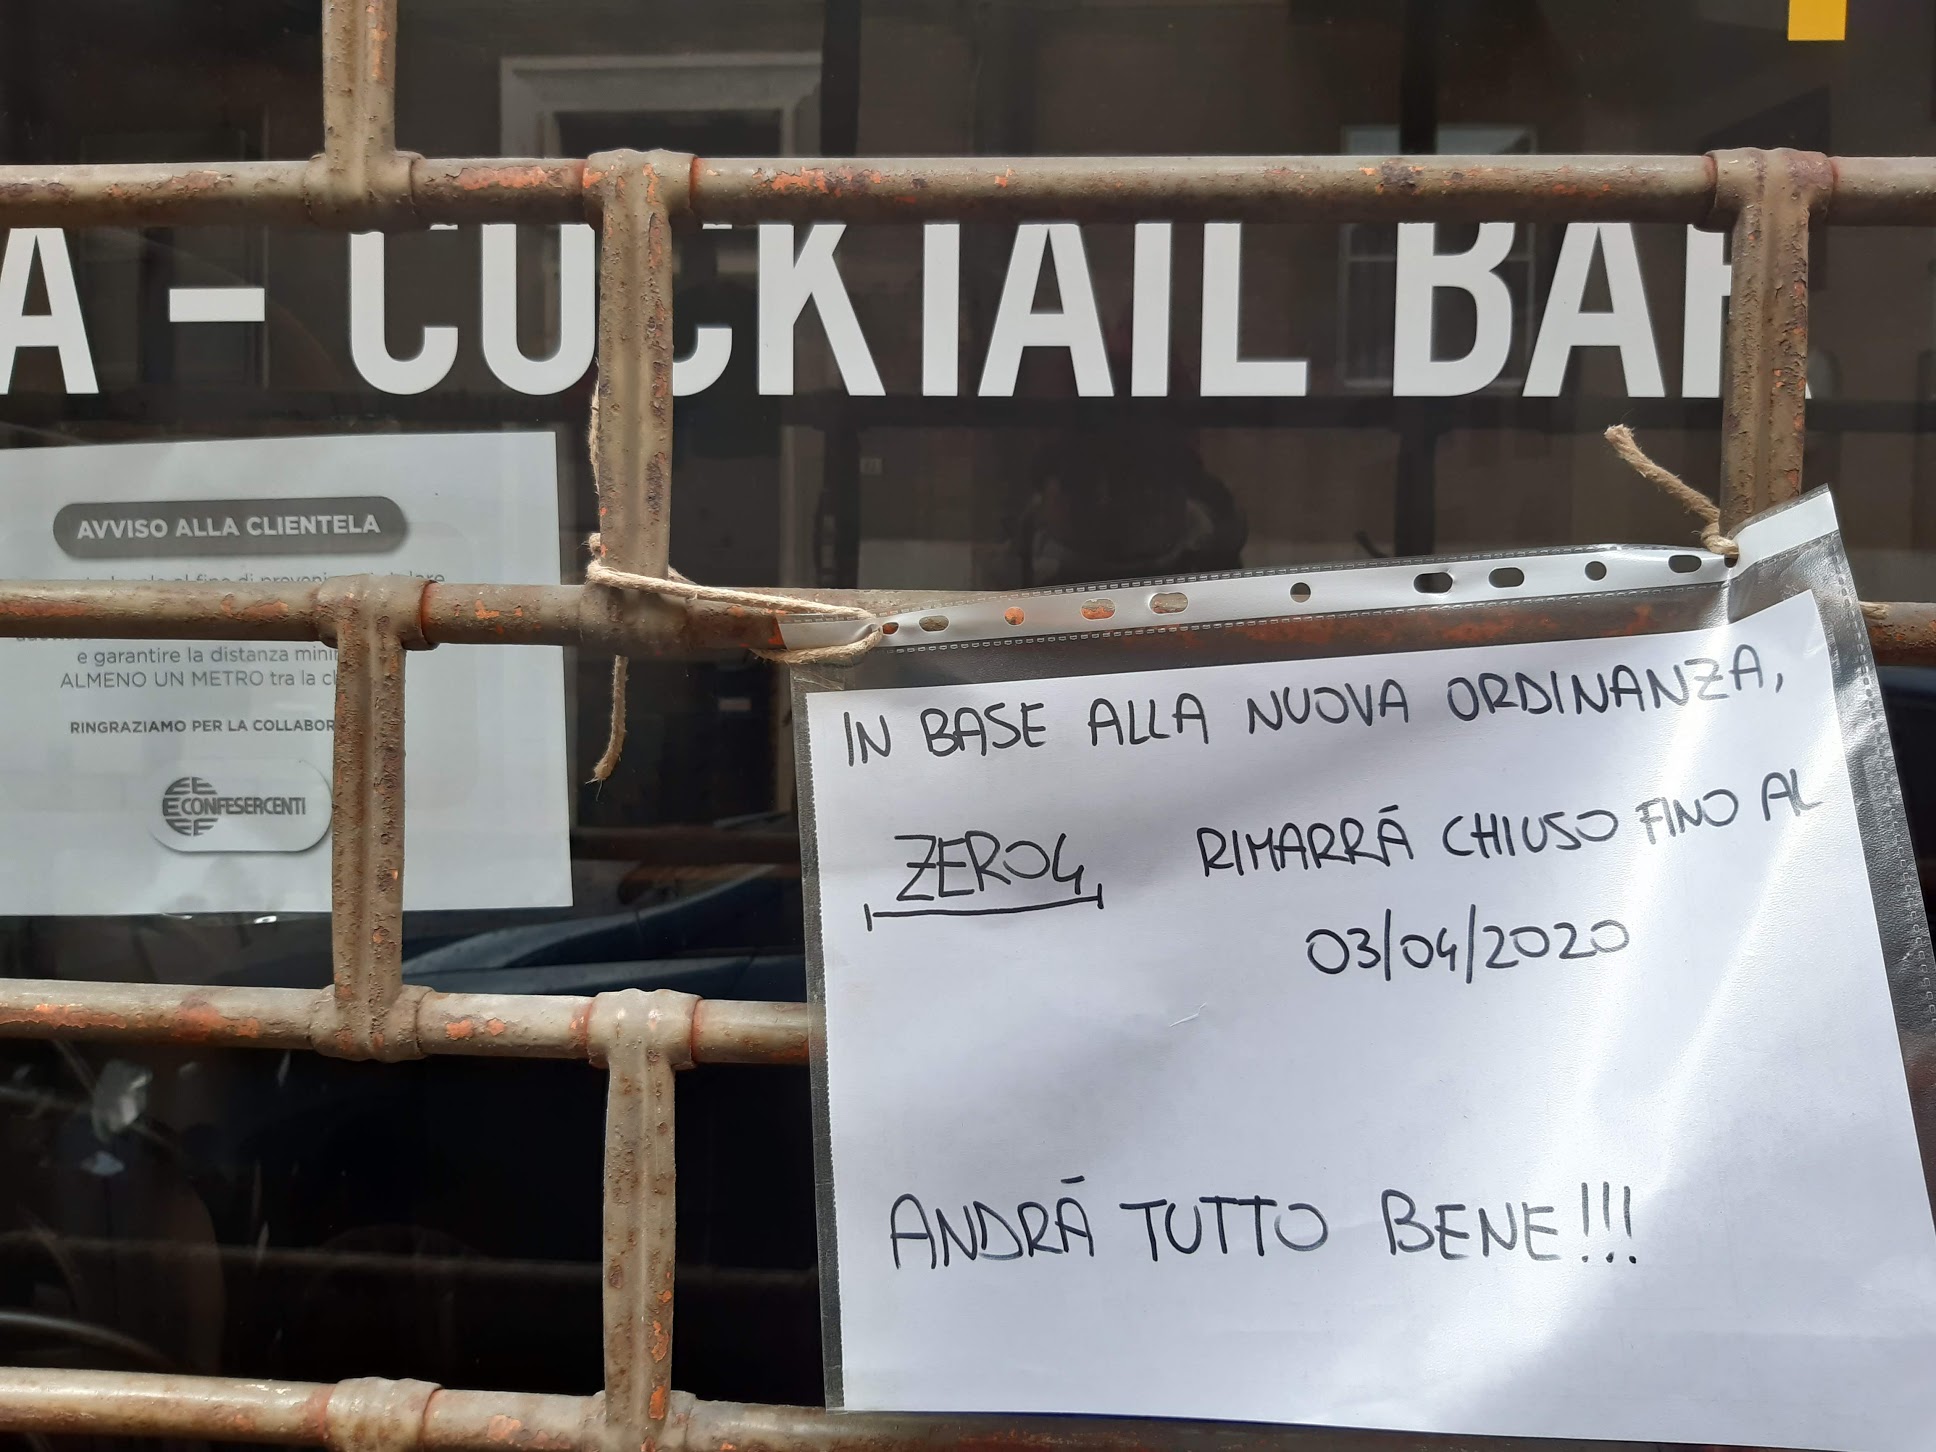 A - COCKTAIL BAR
AVVISO ALLA CLIENTELA
al fine di
e garantire la distanza
ALMENO UN METRO tra la
RINGRAZIAMO PER LA
CONFESERCENTI
IN BASE ALLA NUOVA ORDINANZA,
ZERO4 RIMARRÁ CHIUSO FINO AL
03/04/2020
ANDRÁ TUTTO BENE!!!